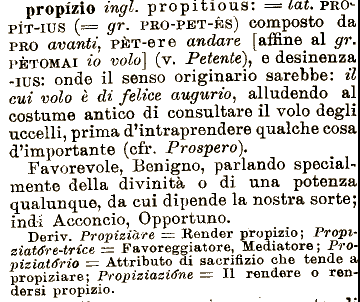 propízio ingl. propitious: = lat. PRO-
PÍT-IUS (= gr. PRO-PET-ÈS) composto da
PRO avanti, PÈT-ere andare [affine al gr.
PÈTOMAI io volo] (v. Petente), e desinenza
-IUS: onde il senso originario sarebbe: il
cui volo è di felice augurio, alludendo al
costume antico di consultare il volo degli
uccelli, prima d'intraprendere qualche cosa
d'importante (cfr. Prospero).
Favorevole, Benigno, parlando special-
mente della divinità o di una potenza
qualunque, da cui dipende la nostra sorte;
indi Acconcio, Opportuno.
Deriv. Propiziàre = Render propizio; Propi-
ziatóre-trice = Favoreggiatore, Mediatore; Pro-
piziatório = Attributo di sacrifizio che tende a
propiziare; Propiziazióne = Il rendere o ren-
dersi propizio.